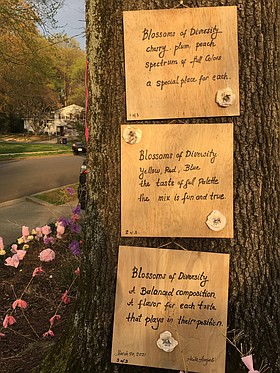 Blossoms of Diversity
cherry, plum, peach
spectrum of full colors
a special place for each.
1 of 3
Blossoms of Diversity
Yellow, Red, Blue
the taste of full Palette
the mix is fun and true.
2 of 3
Blossoms of Diversity
A Balanced composition
A flavor for each taste
that plays in their position.
3 of 3